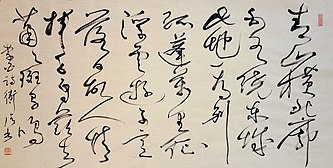 青山橫北郭
白水繞東城
此地一為別
孤蓬萬里征
浮雲遊子意
落日故人情
揮手自茲去
蕭蕭班馬鳴
李白詩